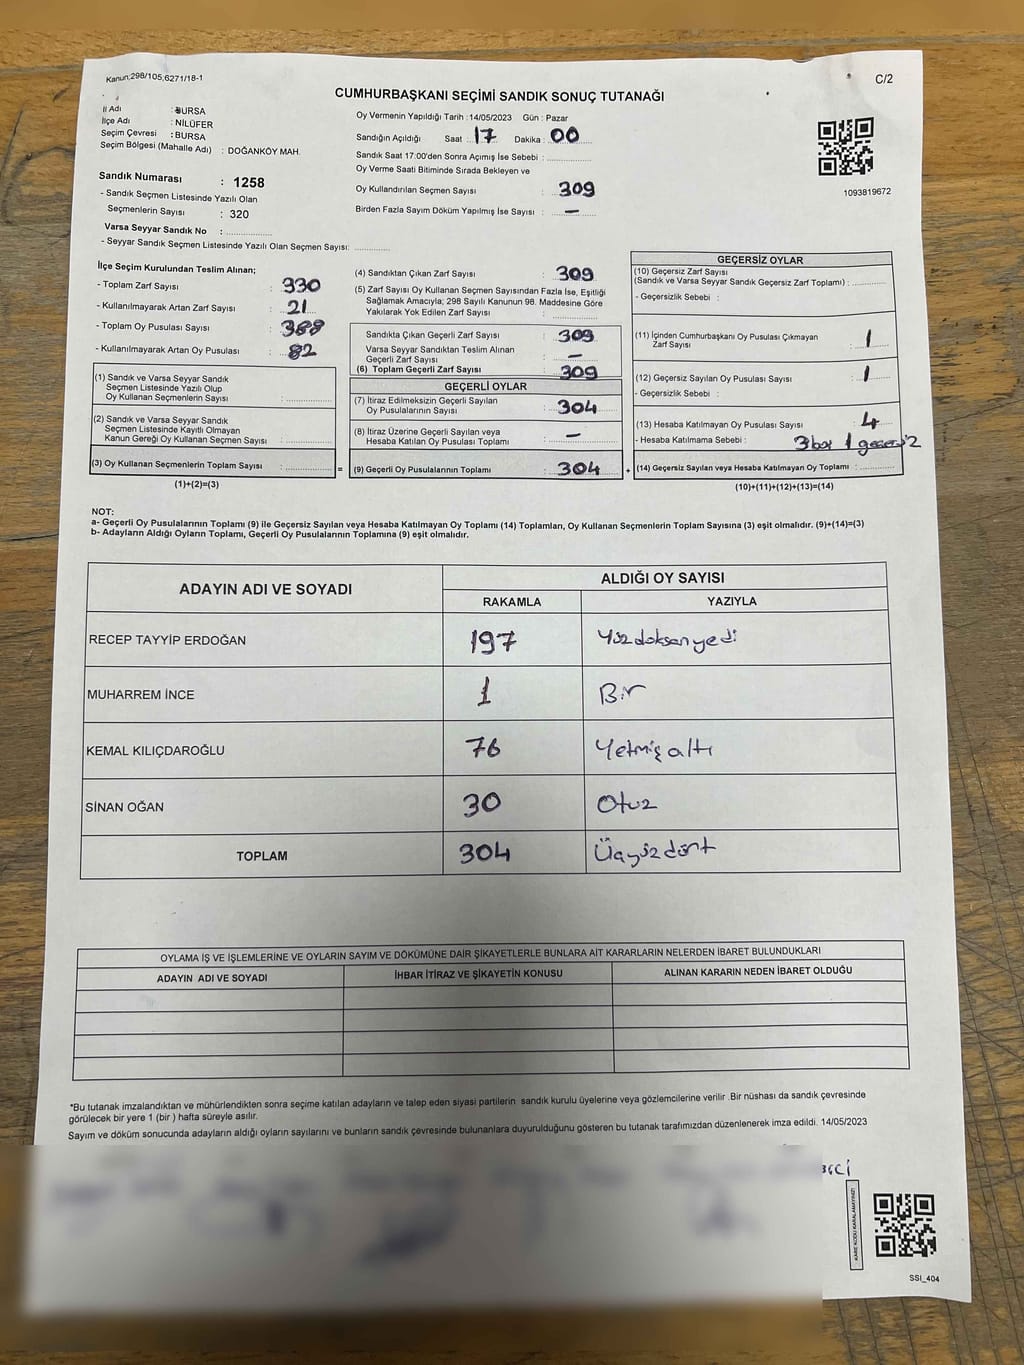 Kanun;298/105,6271/18-1
C/2
CUMHURBAŞKANI SEÇİMİ SANDIK SONUÇ TUTANAĞI
İl Adı : BURSA
İlçe Adı : NİLÜFER
Seçim Çevresi : BURSA
Seçim Bölgesi (Mahalle Adı) : DOĞANKÖY MAH.
Sandık Numarası : 1258
- Sandık Seçmen Listesinde Yazılı Olan
Seçmenlerin Sayısı : 320
Varsa Seyyar Sandık No : ..............
- Seyyar Sandık Seçmen Listesinde Yazılı Olan Seçmen Sayısı: ............
Oy Vermenin Yapıldığı Tarih :14/05/2023 Gün : Pazar
Sandığın Açıldığı Saat : 17 Dakika : 00
Sandık Saat 17:00'den Sonra Açımış İse Sebebi : ..............
Oy Verme Saati Bitiminde Sırada Bekleyen ve
Oy Kullandırılan Seçmen Sayısı : 309
Birden Fazla Sayım Döküm Yapılmış İse Sayısı : —
1093819672
İlçe Seçim Kurulundan Teslim Alınan;
- Toplam Zarf Sayısı : 330
- Kullanılmayarak Artan Zarf Sayısı : 21
- Toplam Oy Pusulası Sayısı : 388
- Kullanılmayarak Artan Oy Pusulası : 82
(1) Sandık ve Varsa Seyyar Sandık
Seçmen Listesinde Yazılı Olup
Oy Kullanan Seçmenlerin Sayısı : ..............
(2) Sandık ve Varsa Seyyar Sandık
Seçmen Listesinde Kayıtlı Olmayan
Kanun Gereği Oy Kullanan Seçmen Sayısı : ..............
(3) Oy Kullanan Seçmenlerin Toplam Sayısı : ..............
(1)+(2)=(3)
(4) Sandıktan Çıkan Zarf Sayısı : 309
(5) Zarf Sayısı Oy Kullanan Seçmen Sayısından Fazla İse, Eşitliği
Sağlamak Amacıyla; 298 Sayılı Kanunun 98. Maddesine Göre
Yakılarak Yok Edilen Zarf Sayısı : ..............
Sandıkta Çıkan Geçerli Zarf Sayısı : 309
Varsa Seyyar Sandıktan Teslim Alınan
Geçerli Zarf Sayısı : —
(6) Toplam Geçerli Zarf Sayısı : 309
GEÇERLİ OYLAR
(7) İtiraz Edilmeksizin Geçerli Sayılan
Oy Pusulalarının Sayısı : 304
(8) İtiraz Üzerine Geçerli Sayılan veya
Hesaba Katılan Oy Pusulası Toplamı : —
= (9) Geçerli Oy Pusulalarının Toplamı : 304 +
GEÇERSİZ OYLAR
(10) Geçersiz Zarf Sayısı
(Sandık ve Varsa Seyyar Sandık Geçersiz Zarf Toplamı) : ............
- Geçersizlik Sebebi :
(11) İçinden Cumhurbaşkanı Oy Pusulası Çıkmayan
Zarf Sayısı : 1
(12) Geçersiz Sayılan Oy Pusulası Sayısı : 1
- Geçersizlik Sebebi :
(13) Hesaba Katılmayan Oy Pusulası Sayısı : 4
- Hesaba Katılmama Sebebi : 3 boş 1 geçersiz
(14) Geçersiz Sayılan veya Hesaba Katılmayan Oy Toplamı : ............
(10)+(11)+(12)+(13)=(14)
NOT:
a- Geçerli Oy Pusulalarının Toplamı (9) ile Geçersiz Sayılan veya Hesaba Katılmayan Oy Toplamı (14) Toplamları, Oy Kullanan Seçmenlerin Toplam Sayısına (3) eşit olmalıdır. (9)+(14)=(3)
b- Adayların Aldığı Oyların Toplamı, Geçerli Oy Pusulalarının Toplamına (9) eşit olmalıdır.
ADAYIN ADI VE SOYADI ALDIĞI OY SAYISI
RAKAMLA YAZIYLA
RECEP TAYYİP ERDOĞAN 197 Yüzdoksanyedi
MUHARREM İNCE 1 Bir
KEMAL KILIÇDAROĞLU 76 Yetmişaltı
SİNAN OĞAN 30 Otuz
TOPLAM 304 Üçyüzdört
OYLAMA İŞ VE İŞLEMLERİNE VE OYLARIN SAYIM VE DÖKÜMÜNE DAİR ŞİKAYETLERLE BUNLARA AİT KARARLARIN NELERDEN İBARET BULUNDUKLARI
ADAYIN ADI VE SOYADI İHBAR İTİRAZ VE ŞİKAYETİN KONUSU ALINAN KARARIN NEDEN İBARET OLDUĞU
*Bu tutanak imzalandıktan ve mühürlendikten sonra seçime katılan adayların ve talep eden siyasi partilerin sandık kurulu üyelerine veya gözlemcilerine verilir .Bir nüshası da sandık çevresinde
görülecek bir yere 1 (bir ) hafta süreyle asılır.
Sayım ve döküm sonucunda adayların aldığı oyların sayılarını ve bunların sandık çevresinde bulunanlara duyurulduğunu gösteren bu tutanak tarafımızdan düzenlenerek imza edildi. 14/05/2023
KARE KODU KARALAMAYINIZ!
SSI_404